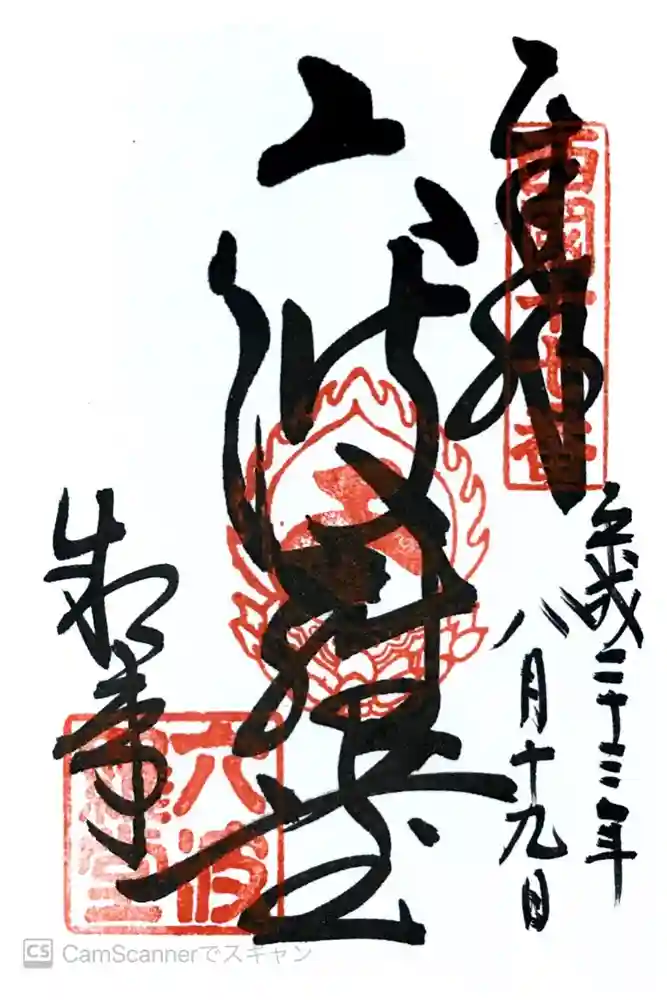 奉拝
西國十七番
平成二十三年
八月十九日
六波羅堂
六波羅堂
CamScannerでスキャン